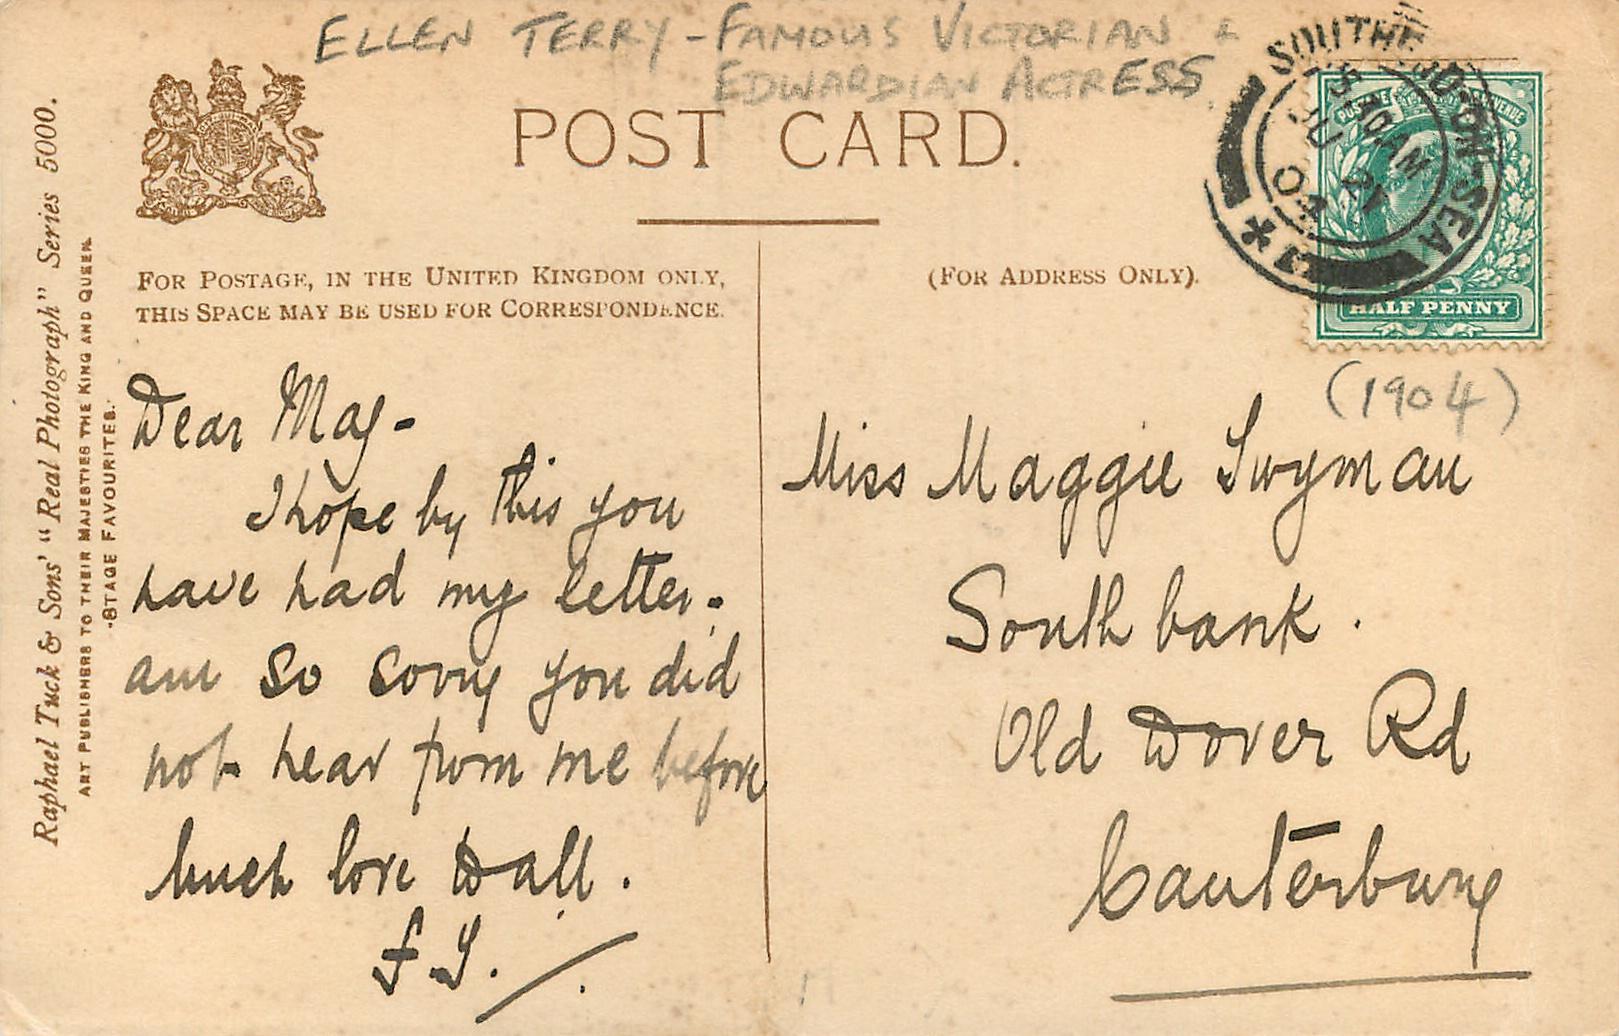 ELLEN TERRY - FAMOUS VICTORIAN &
EDWARDIAN ACTRESS.
POST CARD.
FOR POSTAGE, IN THE UNITED KINGDOM ONLY,
THIS SPACE MAY BE USED FOR CORRESPONDENCE.
(FOR ADDRESS ONLY).
Raphael Tuck & Sons' "Real Photograph" Series 5000.
ART PUBLISHERS TO THEIR MAJESTIES THE KING AND QUEEN.
·STAGE FAVOURITES.·
SOUTHEND-ON-SEA
10 AM
JU 21
04
1
POSTAGE REVENUE
HALF PENNY
(1904)
Dear Mag -
I hope by this you
have had my letter.
am so sorry you did
not hear from me before
Much love to all.
F. S.
Miss Maggie Swyman
South bank.
Old Dover Rd
Canterbury